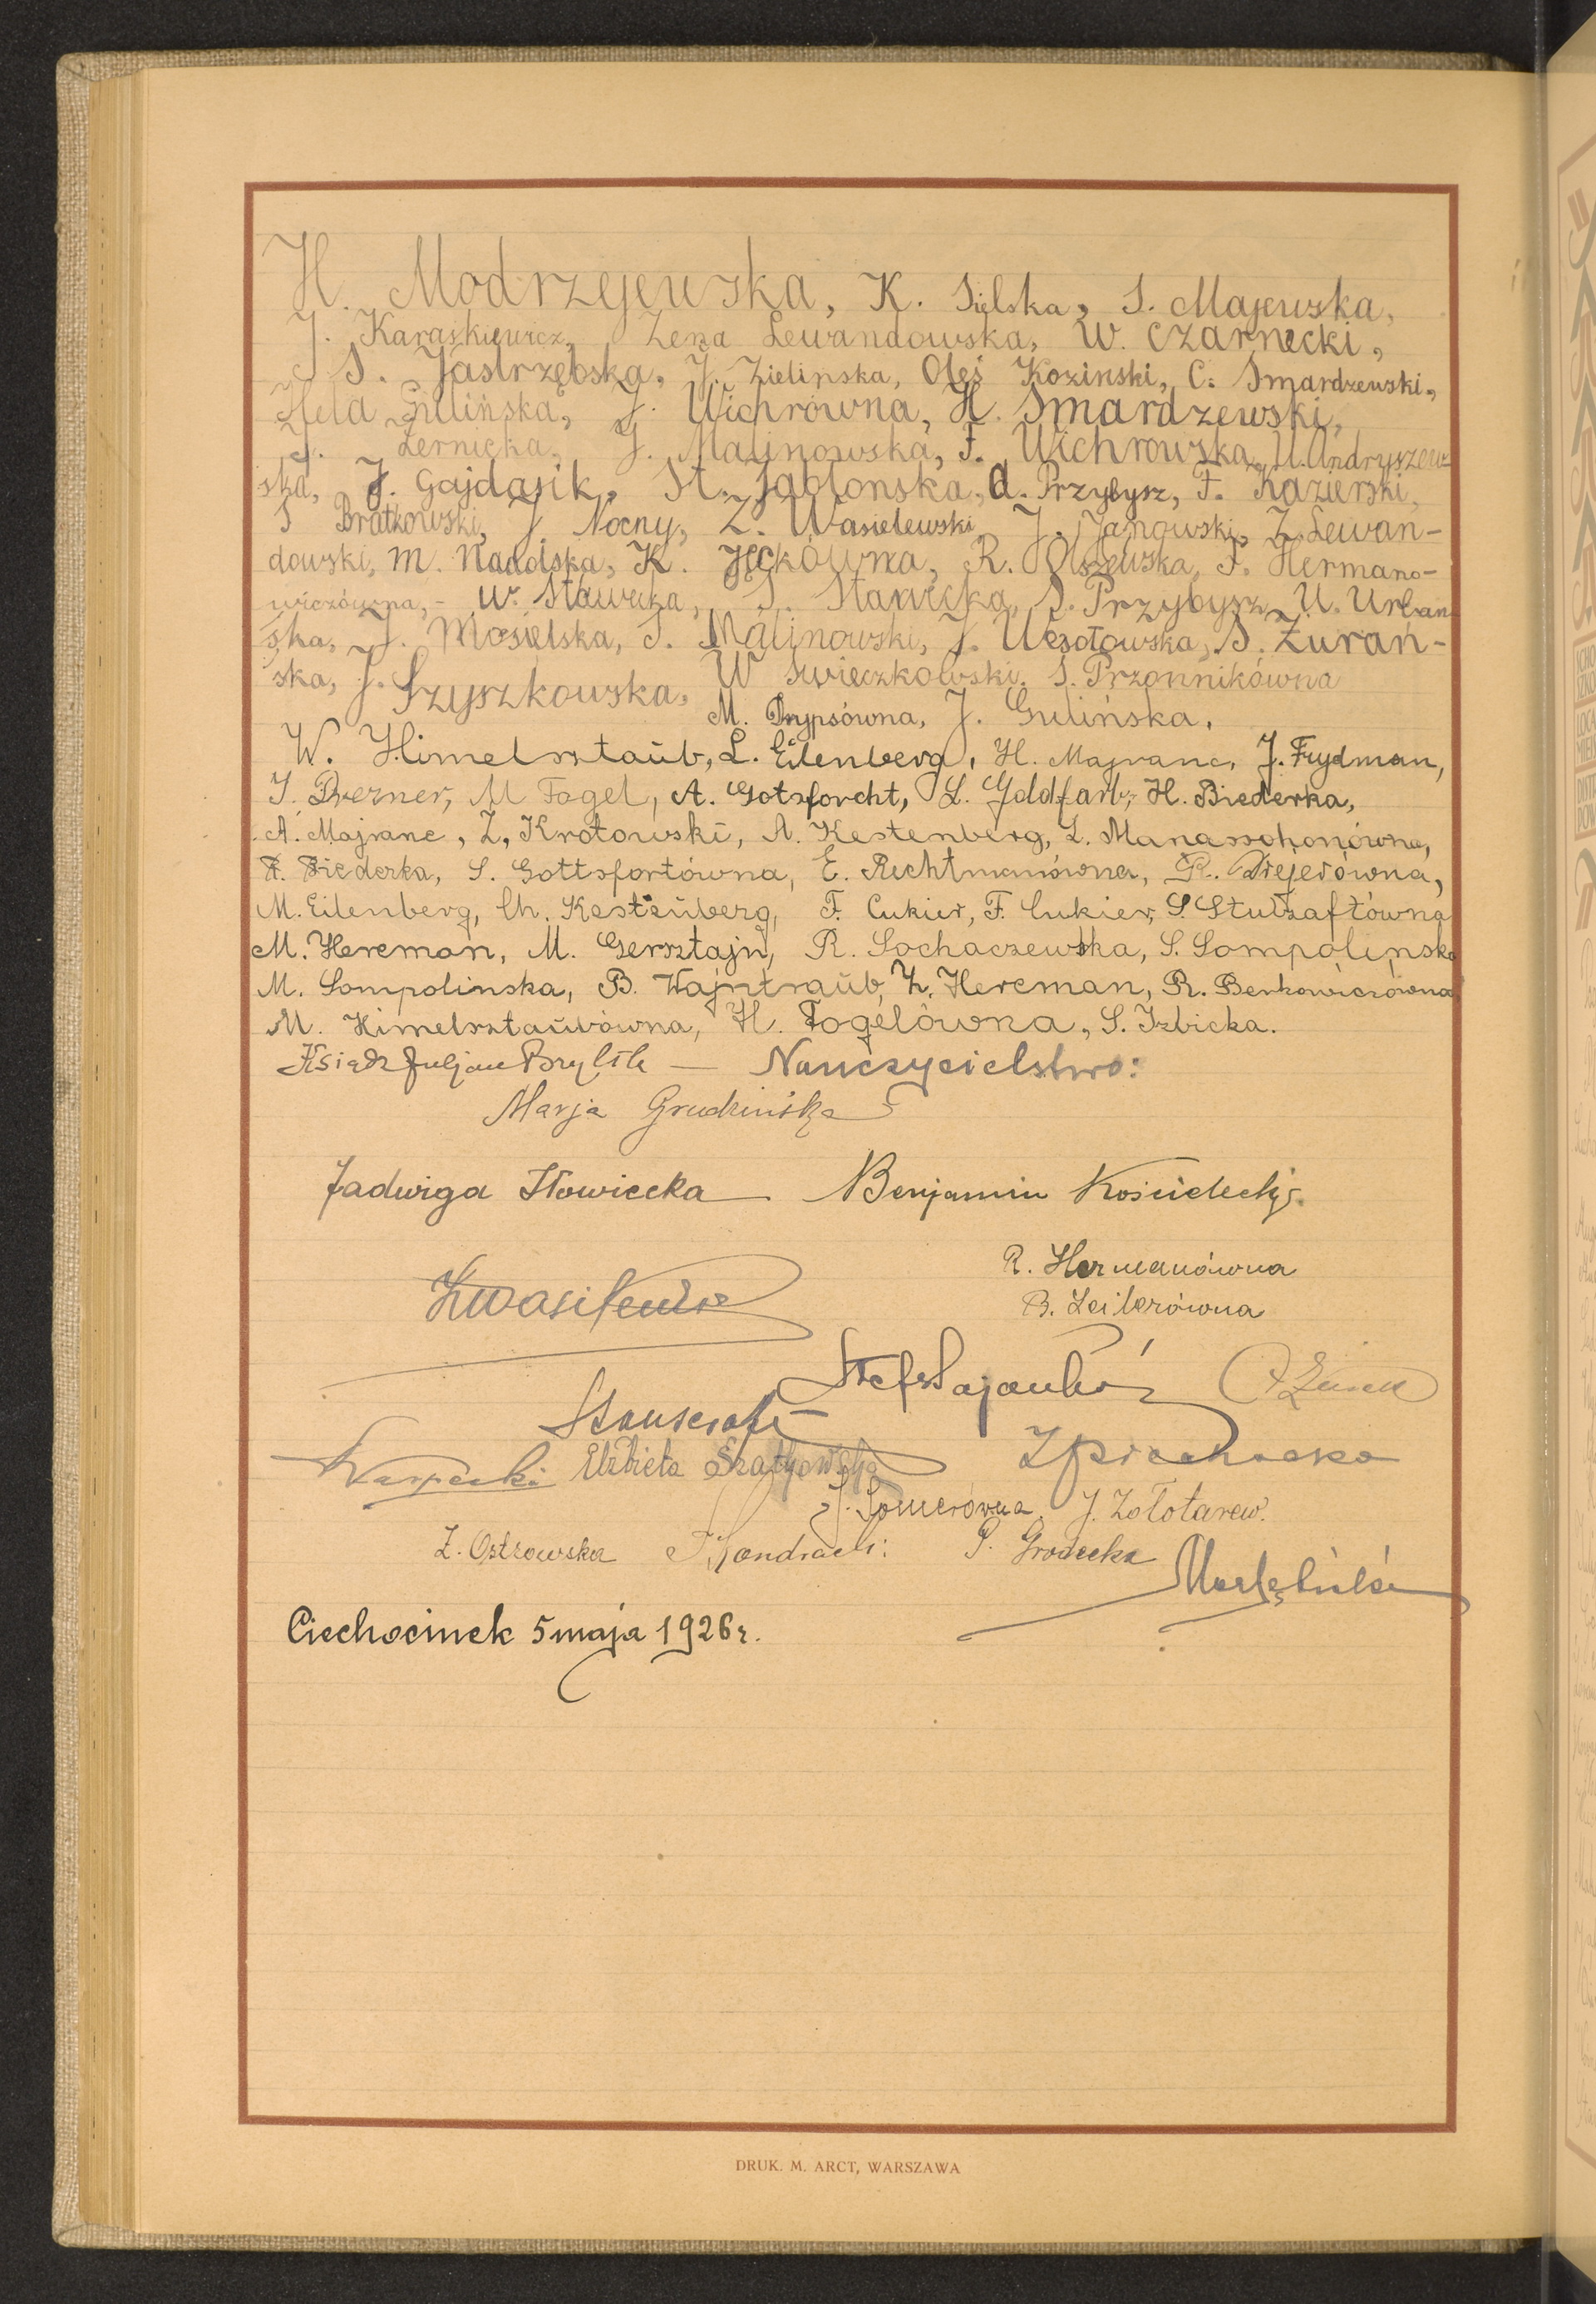 H. Modrzejewska, K. Sielska, S. Majewska,
J. Karaśkiewicz, Zena Lewandowska, W. Czarnecki,
S. Jastrzębska, J. Zielinska, Oleś Kozinski, C. Smardzewski,
Hela Gulińska, J. Wichrówna, H. Smardzewski,
J. Zernicka, J. Malinowska, F. Wichrowska, U. Andryszew-
ska, J. Gajdasik, St. Jabłonska, A. Przybysz, F. Kazierski,
S Bratkowski, J Nocny, Z. Wasielewski, J. Janowski, Z. Lewan-
dowski, M. Nadolska, K. Jeckówna, R. Olszewska, F. Hermano-
wiczówna, - W. Stawicka, S. Stawicka, S. Przybysz, U. Urban
ska, J. Mosielska, S. Malinowski, J. Wesołowska, S. Żurań-
ska, J. Szyszkowska, W Swieczkowski, S. Przonnikówna
M. Prypsówna, J. Gulińska.
W. Himelsztaub, L. Eilenberg, H. Majranc, J. Frydman,
I. Brezner, M Fogel, A. Gotsforcht, L. Goldfarb, H. Biederka,
A. Majranc, Z. Krotowski, A. Kestenberg, L. Manassohonówna,
F. Biederka, S. Gottsfortówna, E. Rechtmanówna, R. Drejerówna,
M. Eilenberg, Ch. Kestenberg, F. Cukier, F. Cukier, S. Stulzaftówna
M. Hercman, M. Gersztajn, R. Sochaczewska, S. Sompolinska
M. Sompolinska, B. Wajntraub, Ch. Hercman, R. Berkowiczówna
M. Himelsztaubówna, H. Fogelówna, S. Izbicka.
Ksiądz Juljan Brylik — Nauczycielstwo:
Marja Grudzińska
Jadwiga Iłowiecka Benjamin Kościelecki
R. Hermanówna
B. Leiberówna
Elżbieta
J. Somerówna J. Zołotarew.
Z. Ostrowska J Kondracki P. Grodecka
Ciechocinek 5 maja 1926 r.
DRUK. M. ARCT, WARSZAWA